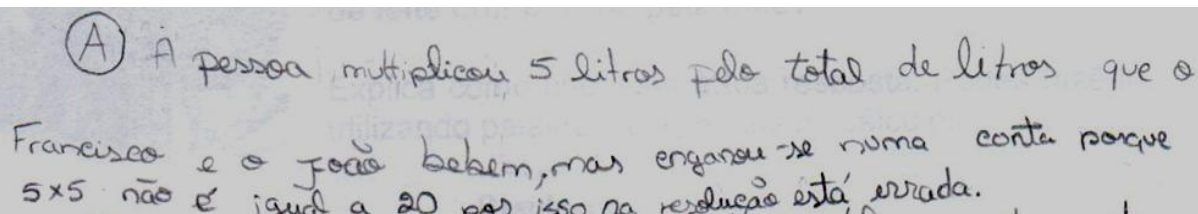 (A) A pessoa multiplicou 5 litros pelo total de litros que o
Francisco e o João bebem, mas enganou-se numa conta porque
5×5 não é igual a 20 por isso na resolução está errada.